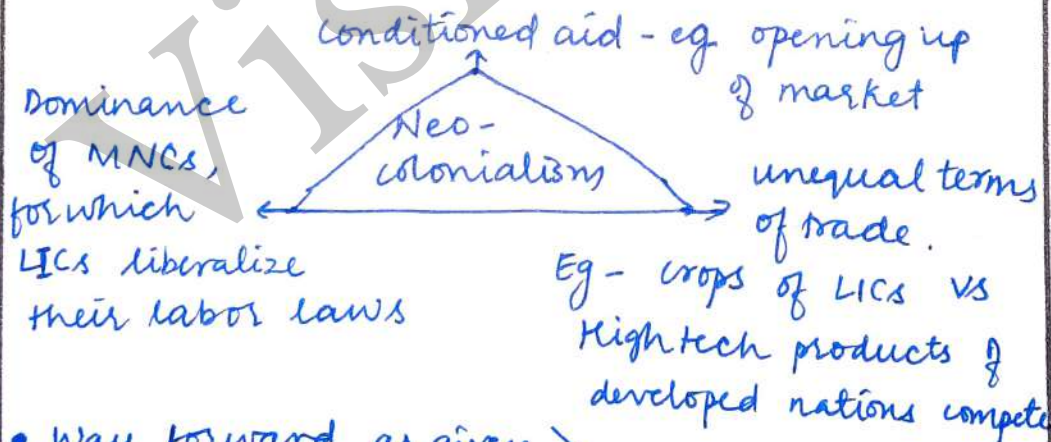 conditioned aid - eg. opening up
of market
Dominance
of MNCs,
for which
LICs liberalize
their labor laws
Neo-
colonialism
unequal terms
of trade.
Eg - crops of LICs vs
High tech products of
developed nations compete
• Way forward as given
Vis